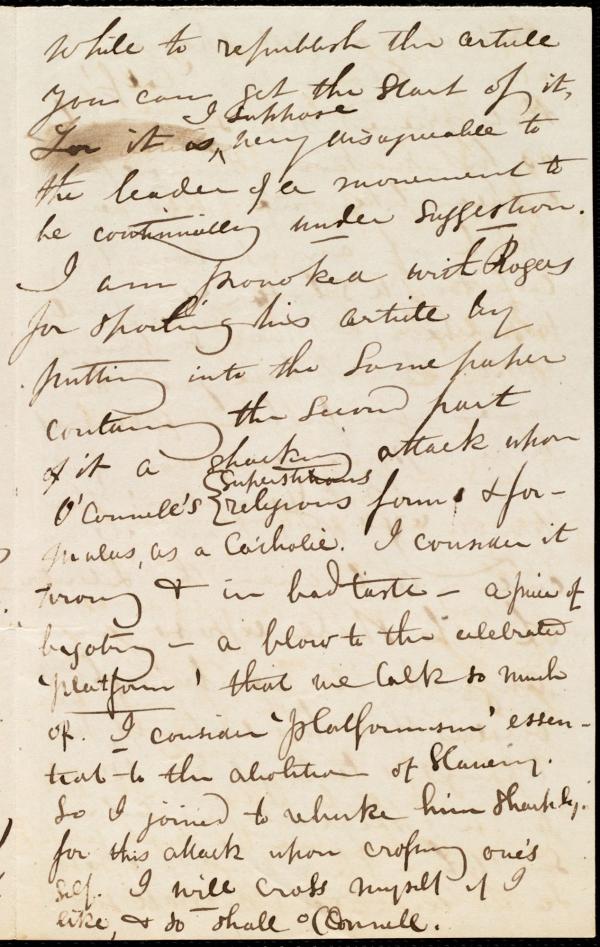 while to republish the article
you can get the start of it,
I suppose
For it is, very disagreeable to
the leader of a movement to
be continually under suggestion.
I am provoked with Rogers
for spoiling his article by
putting into the same paper
containing the second part
of it a shocking attack upon
superstitious
O'Connell's religious forms & for-
mulas, as a Catholic. I consider it
wrong & in bad taste — a piece of
bigotry — a blow to the celebrated
'platform' that we talk so much
of. I consider 'platformism' essen-
tial to the abolition of Slavery.
So I joined to rebuke him sharply.
for this attack upon crossing one's
self. I will cross myself if I
like, & so shall O'Connell.